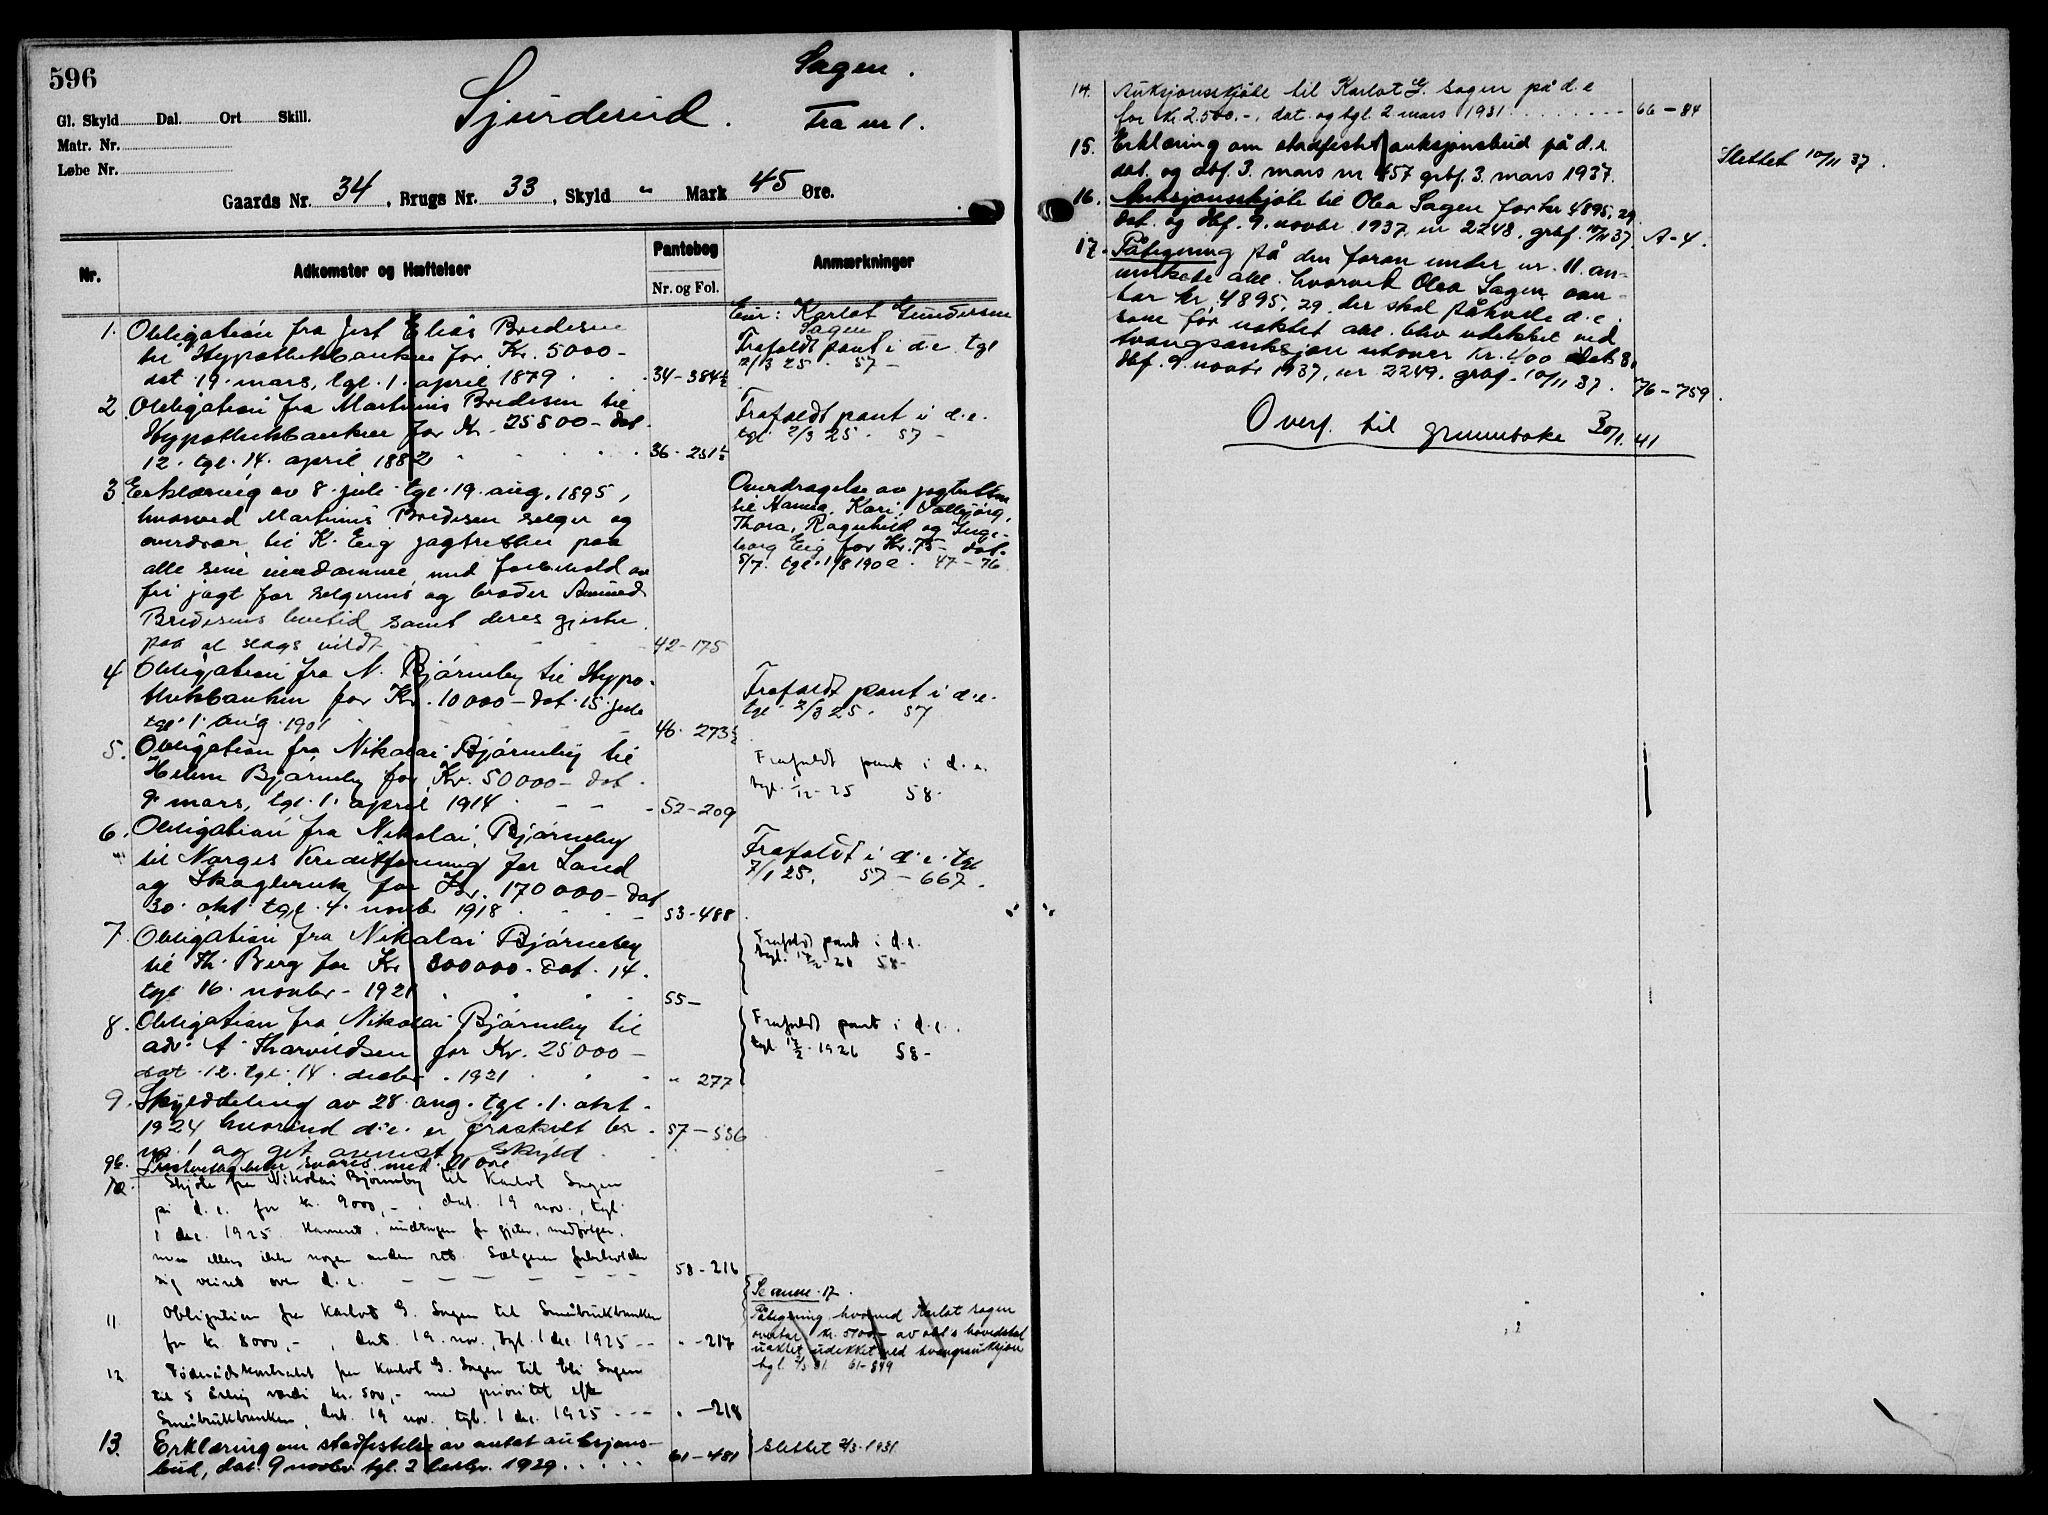 596
Sagen.
Sjurderud. Fra nr 1.
Gl. Skyld Dal. Ort Skill.
Matr. Nr.
Løbe Nr.
Gaards Nr. 34, Brugs Nr. 33, Skyld " Mark 45 Øre.
Nr.
Adkomster og Hæftelser
Pantebog
Nr. og Fol.
Anmærkninger
1. Obligation fra Jost Elias Bredesen
til Hypothekbanken for Kr. 5000-
dat 19. mars, tgl. 1. april 1879 . . 34-384½
Eier: Karlot Gundersen
Sagen
Frafaldt pant i d.e. tgl
2/3 25. 57-
2. Obligation fra Martinius Bredesen til
Hypothekbanken for Kr. 25500- dat.
12. tgl. 14. april 1882 . . . 36-251½
Frafaldt pant i d.e.
tgl. 2/3 25. 57-
3. Erklæring av 8. juli tgl. 19. aug. 1895,
hvorved Martinius Bredesen selger og
overdrar til K. Eeg jagtretten paa
alle sine eiendomme, med forbehold av
fri jagt for selgerens og broder Amund
Bredesens levetid samt deres gjester
paa al slags vildt 42-175
Overdragelse av jagtretten
til Hanna, Kari, Valbjørg,
Thora, Ragnhild og Inge-
borg Eeg for Kr. 75- dat.
5/7. tgl. 1/8 1902. 47-76
4. Obligation fra N. Bjørneby til Hypo-
thekbanken for Kr. 10000- dat. 15 juli
tgl. 1. aug. 1901 - - - 46-273½
Frafaldt pant i d.e.
tgl 2/3 25. 57
5. Obligation fra Nikolai Bjørneby til
Helene Bjørneby for Kr. 50000- dat.
9. mars, tgl. 1. april 1914 - - - 52-209
Frafaldt pant i d.e.
tgl. 1/12-25 58-
6. Obligation fra Nikolai Bjørneby
til Norges Kreditforening for Land
og Skogbruk for Kr. 170000- dat
30. okt tgl. 4. novbr 1918 . . . 53-488
Frafaldt i d.e. tgl
7/1 25. 57-667.
7. Obligation fra Nikolai Bjørneby
til Th. Berg for Kr 300000- dat. 14.
tgl 16. novbr- 1921 . . . 55-
Frafaldt pant i d.e.
tgl. 17/2-26 58-
8. Obligation fra Nikolai Bjørneby til
adv. A. Tharaldsen for Kr. 25000-
dat. 12. tgl. 14. decbr. 1921 . . . " 277
Frafaldt pant i d.e.
tgl 17/2-1926 58-
9. Skylddeling av 28. aug. tgl. 1. okt.
1924 hvorved d.e. er fraskilt br.
nr. 1 og git ovennevnte skyld . 57-556
9b. svares med 01 øre
10. Skjøte fra Nikolai Bjørneby til Karlot Sagen
på d.e. for kr. 9000,-, dat. 19 nov., tgl.
1 dec. 1925. Havnerett, undtagen for gjeter, medfølger,
men ellers ikke nogen anden ret. Sælgeren forbeholder
sig veiret over d.e. - - - - - - - 58-216
11 Obligation fra Karlot G. Sagen til Småbrukbanken
for kr. 8000,-, dat. 19. nov., tgl. 1 dec. 1925 -- " -217
Se anm. 17.
Påtegning hvorved Karlot Sagen
overtar kr. 5100- av obl.s hovedstol
uaktet udekket ved tvangsauksjon
tgl. 2/3 31 61-849
12. Føderådskontrakt fra Karlot G. Sagen til Eli Sagen
til 5 årlig verdi kr. 500,- med prioritet efter
Småbrukbanken, dat. 19 nov. tgl. 1 dec. 1925 --- " -218
13. Erklæring om stadfestelse av antat auksjons-
bud, dat. 9 novbr tgl. 2 desbr. 1929 . . . . 61-481
Slettet 2/3-1931
14. Auksjonsskjøte til Karlot G. Sagen på d.e
for kr. 2.500.-, dat. og tgl. 2 mars 1931 . . . . . . - 66-84
15. Erklæring om stadfestet auksjonsbud på d.e
dat. og dbf. 3. mars nr 457 grbf. 3. mars 1937.
Slettet 10/11 37.
16. Auksjonsskjøte til Olea Sagen for kr 4895,29.
dat. og dbf. 9. novbr. 1937. nr 2248. grbf. 10/11 37. A-4.
17. Påtegning på den foran under nr. 11 an-
merkede obl. hvorved Olea Sagen over-
tar kr 4895,29 der skal påhvile d.e.
som før uaktet obl. blev udekket ved
tvangsauksjon utover kr. 400 dat 8.
dbf. 9. novbr 1937, nr 2249. grbf. 10/11 37. 76-759.
Overf. til grunnboka 30/1. 41